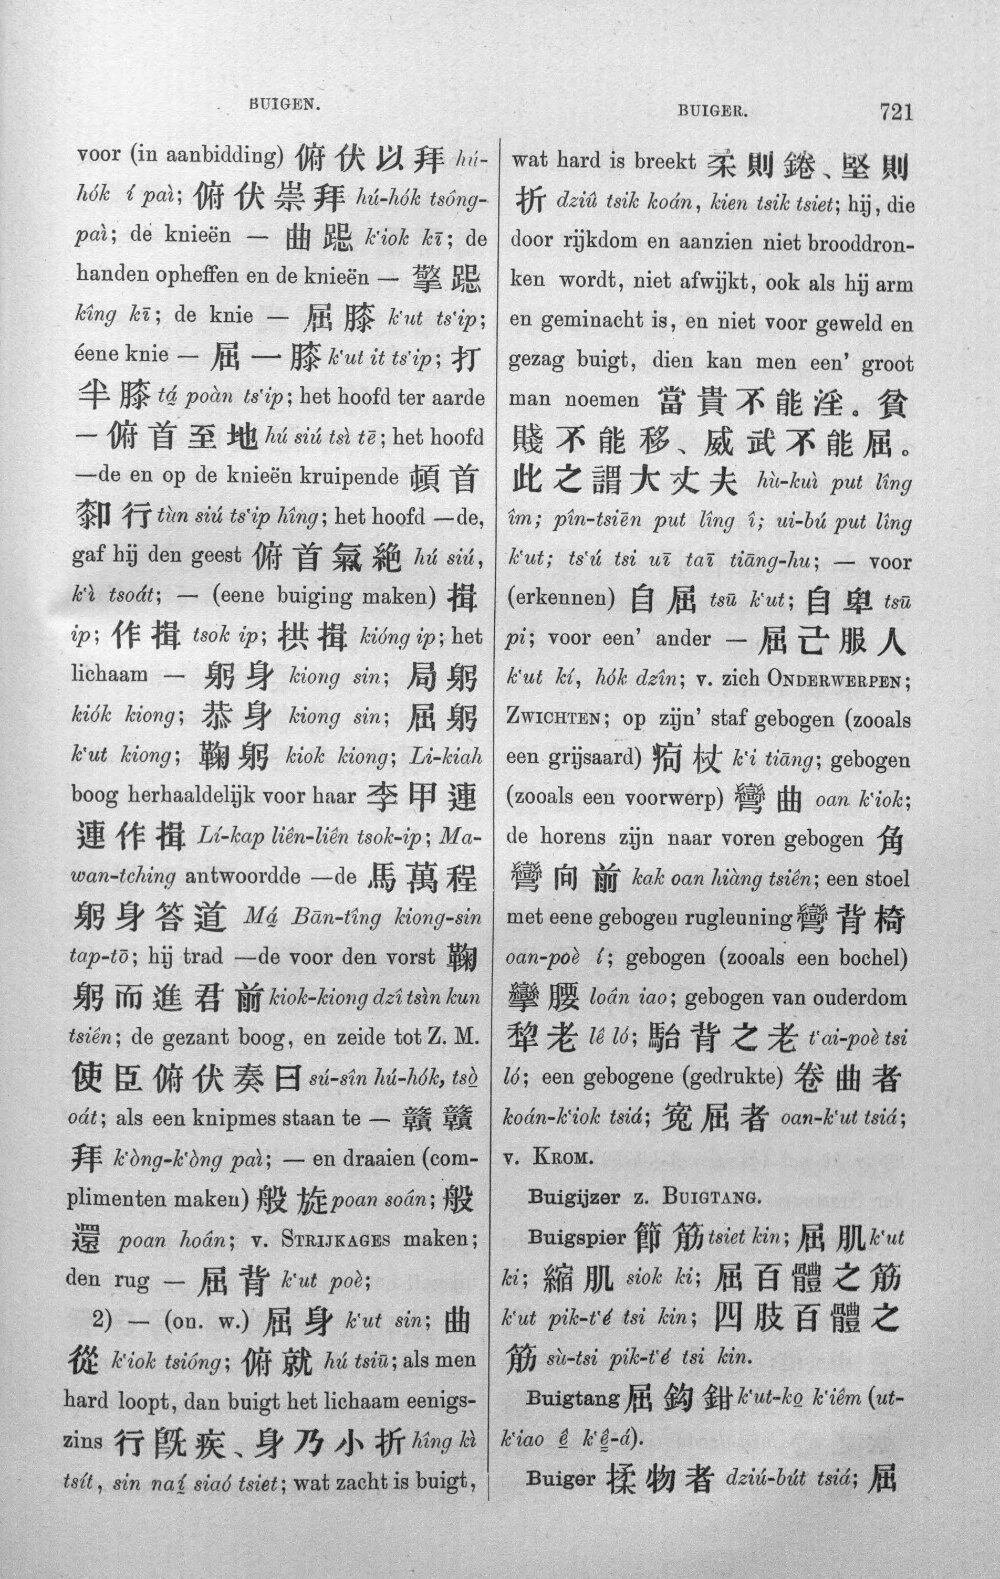 BUIGEN.
voor (in aanbidding) 俯伏以拜 hú-
hók í paì; 俯伏崇拜 hú-hók tsông-
paì; de knieën — 曲跽 k‘iok kī; de
handen opheffen en de knieën — 擎跽
kîng kī; de knie — 屈膝 k‘ut ts‘ip;
éene knie — 屈一膝 k‘ut it ts‘ip; 打
半膝 tá̤ poàn ts‘ip; het hoofd ter aarde
— 俯首至地 hú siú tsì tē; het hoofd
—de en op de knieën kruipende 頓首
厀行 tùn siú ts‘ip hîng; het hoofd —de,
gaf hij den geest 俯首氣絶 hú siú,
k‘ì tsoát; — (eene buiging maken) 揖
ip; 作揖 tsok ip; 拱揖 kióng ip; het
lichaam — 躬身 kiong sin; 局躬
kiók kiong; 恭身 kiong sin; 屈躬
k‘ut kiong; 鞠躬 kiok kiong; Li-kiah
boog herhaaldelijk voor haar 李甲連
連作揖 Lí-kap liên-liên tsok-ip; Ma-
wan-tching antwoordde —de 馬萬程
躬身答道 Má̤ Bān-tîng kiong-sin
tap-tō; hij trad —de voor den vorst 鞠
躬而進君前 kiok-kiong dzî tsìn kun
tsiên; de gezant boog, en zeide tot Z. M.
使臣俯伏奏曰 sú-sîn hú-hók, tsò̤
oát; als een knipmes staan te — 贛贛
拜 k‘òng-k‘òng paì; — en draaien (com-
plimenten maken) 般旋 poan soán; 般
還 poan hoân; v. STRIJKAGES maken;
den rug — 屈背 k‘ut poè;
2) — (on. w.) 屈身 k‘ut sin; 曲
從 k‘iok tsióng; 俯就 hú tsiū; als men
hard loopt, dan buigt het lichaam eenigs-
zins 行旣疾、身乃小折 hîng kì
tsít, sin naí̤ siaó tsiet; wat zacht is buigt,
BUIGER. 721
wat hard is breekt 柔則錈、堅則
折 dziû tsik koán, kien tsik tsiet; hij, die
door rijkdom en aanzien niet brooddron-
ken wordt, niet afwijkt, ook als hij arm
en geminacht is, en niet voor geweld en
gezag buigt, dien kan men een’ groot
man noemen 富貴不能淫。貧
賤不能移、威武不能屈。
此之謂大丈夫 hù-kuì put lîng
îm; pîn-tsiēn put lîng î; ui-bú put lîng
k‘ut; ts‘ú tsi uī taī tiāng-hu; — voor
(erkennen) 自屈 tsū k‘ut; 自卑 tsū
pi; voor een’ ander — 屈己服人
k‘ut kí, hók dzîn; v. zich ONDERWERPEN;
ZWICHTEN; op zijn’ staf gebogen (zooals
een grijsaard) 痀杖 k‘i tiāng; gebogen
(zooals een voorwerp) 彎曲 oan k‘iok;
de horens zijn naar voren gebogen 角
彎向前 kak oan hiàng tsiên; een stoel
met eene gebogen rugleuning 彎背椅
oan-poè í; gebogen (zooals een bochel)
攣腰 loân iao; gebogen van ouderdom
犂老 lê ló; 駘背之老 t‘ai-poè tsi
ló; een gebogene (gedrukte) 卷曲者
koán-k‘iok tsiá; 寃屈者 oan-k‘ut tsiá;
v. KROM.
Buigijzer z. BUIGTANG.
Buigspier 節筋 tsiet kin; 屈肌 k‘ut
ki; 縮肌 siok ki; 屈百體之筋
k‘ut pik-t‘é tsi kin; 四肢百體之
筋 sù-tsi pik-t‘é tsi kin.
Buigtang 屈鈎鉗 k‘ut-ko̤ k‘iêm (ut-
k‘iao ê̤ k‘ê̤-á).
Buiger 揉物者 dziú-bút tsiá; 屈